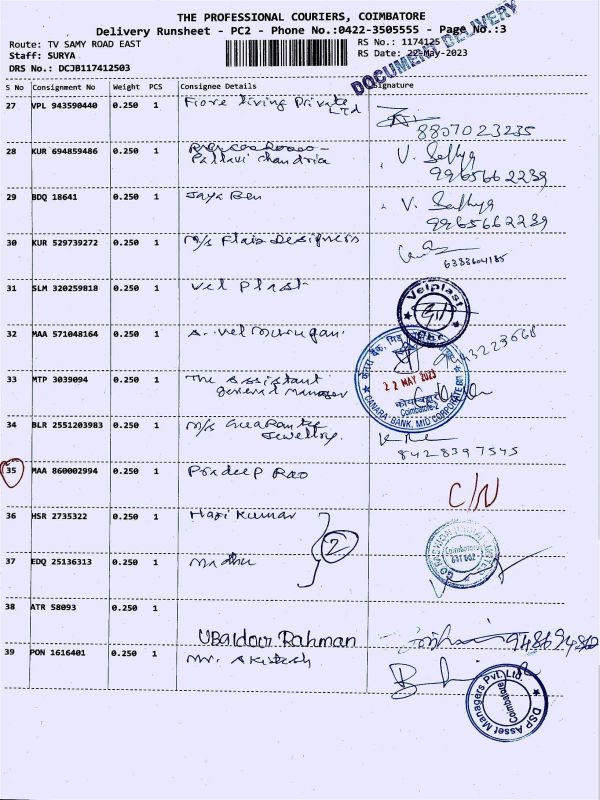 THE PROFESSIONAL COURIERS, COIMBATORE
Delivery Runsheet - PC2 - Phone No.:0422-3505555 - Page No.:3
DOCUMENT DELIVERY
Route: TV SAMY ROAD EAST RS No.: 1174125
Staff: SURYA RS Date: 22-May-2023
DRS No.: DCJB117412503
S No Consignment No Weight PCS Consignee Details Signature
27 VPL 943590440 0.250 1 Fiore Living Private Ltd
8807023235
28 KUR 694859486 0.250 1 Pallavi Chandria V. Sathya
9965662239
29 BDQ 18641 0.250 1 Jaya Ben V. Sathya
9965662239
30 KUR 529739272 0.250 1 M/s Flair Designers
6383604185
31 SLM 320259818 0.250 1 Vel Plast Velplast
32 MAA 571048164 0.250 1 S. Vel Murugan
33 MTP 3039094 0.250 1 The Assistant General Manager 22 MAY 2023
CANARA BANK, MID CORPORATE
Coimbatore-2
34 BLR 2551203983 0.250 1 M/s Guarantee Jewellery
8428397545
35 MAA 860002994 0.250 1 Pradeep Rao C/N
36 HSR 2735322 0.250 1 Hari Kumar
2
Coimbatore
641 002
37 EDQ 25136313 0.250 1 Madhu
38 ATR 58093 0.250 1
Ubaidour Rahman
39 PON 1616401 0.250 1 Mr. Akilesh
DSP Asset Managers Pvt. Ltd.
Coimbatore